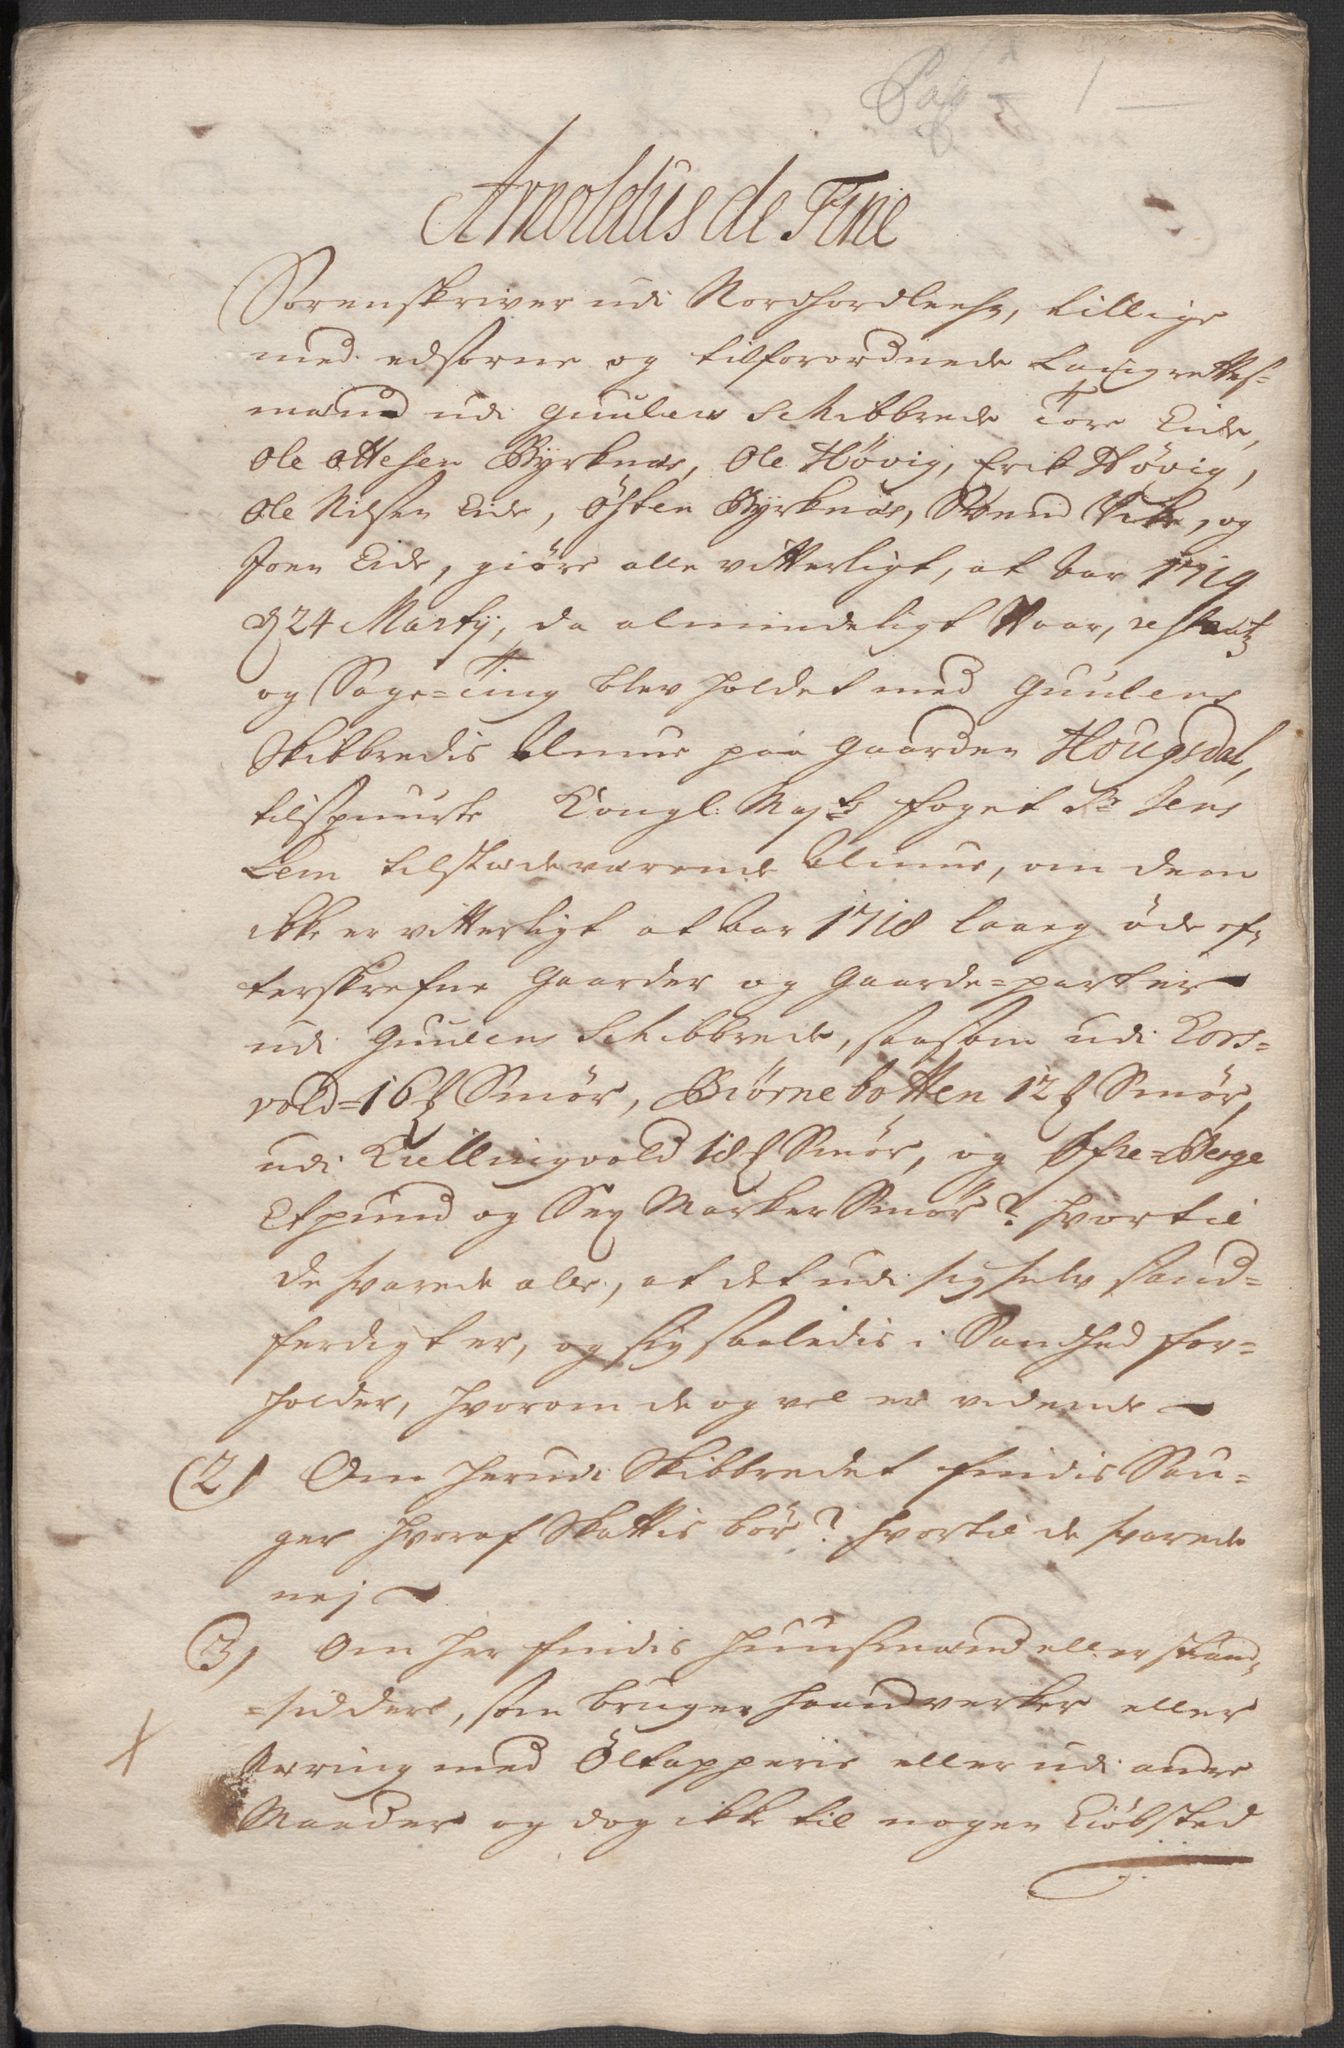 Pag 1
Arnoldus de Fine
Sorenskriver udi Nordhordlehn, tillige
med edsorne og tilforordnede Laugrettes=
mænd udi guulens Schibbrede Tore Eide,
Ole Ottesen Byrknæs, Ole Høvig, Erik Høvig,
Ole Nilsen Eide, Østen Byrknæs, Svend Vike, og
Joen Eide, giøre alle vitterligt, at Aar 1719
d 24 Martij, da almindeligt Vaar, restantz
og Sage=Ting blev holdet med Guulens
Skibbredis Almue paa gaarden Hougsdal,
tilspurte Kongl. Mayts foget Sr Jens
Lem tilstædeværende Almue, om dem
ikke er vitterligt at Aar 1718 laaeg øde ef,
terskrefne gaarder og gaarde=parter
udi Guulens Schibbrede, saasom udi Kors=
vold=16 Smør, Biørnebotten 12 Smør,
udi Kiellingvold 18 Smør, og Øfre=Berge
Etpund og Sex Marker Smør? hvortil
de svarede alle, at det udi sig selv sand=
ferdigt er, og sig saaledis i Sandhed for=
holder, hvorom de og vel er vidende
(2) Om herudi Skibbredet findis Sau=
ger hvoraf Skattis bør? hvortil de svarede
nej
3) Om her findis huusmænd eller Strand,
=siddere, som bruger haandverker eller
Næring med Øltapperie eller udi andre
Maader og dog ikke til nogen Kiøbsted